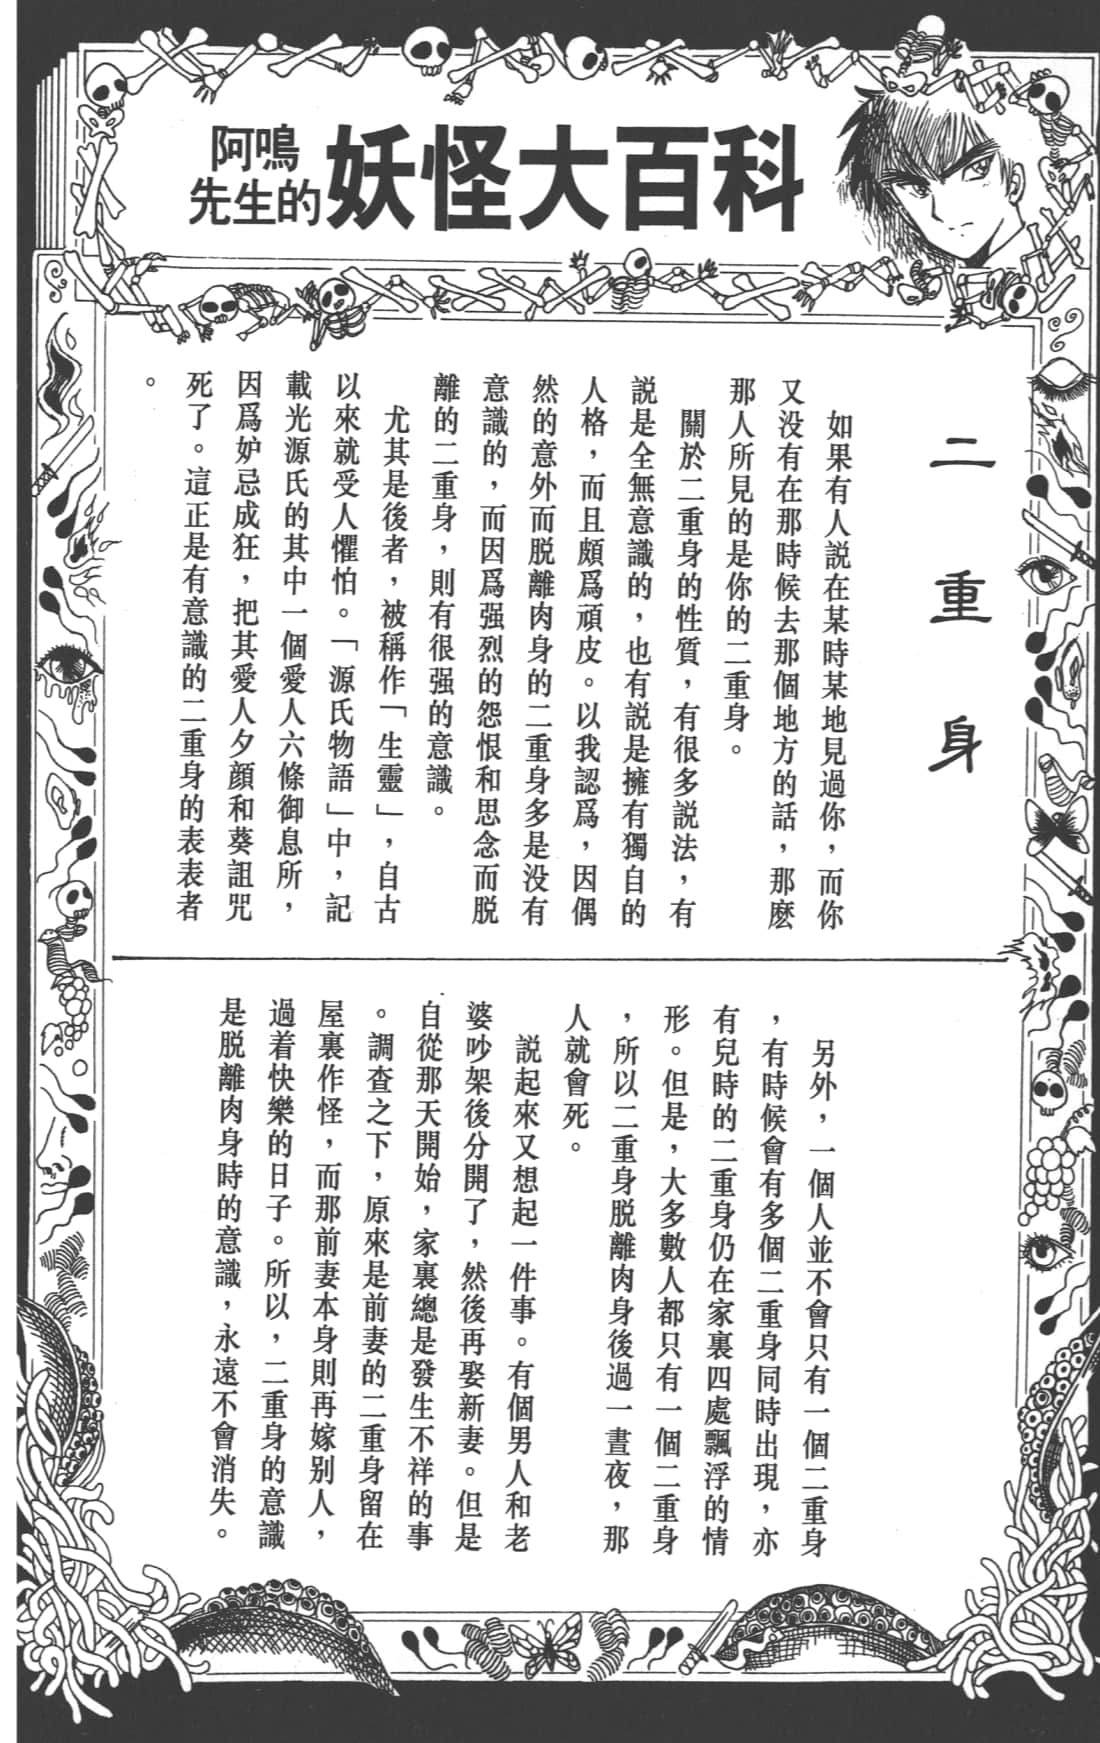 阿鳴
先生的
妖怪大百科
二重身
如果有人説在某時某地見過你，而你
又没有在那時候去那個地方的話，那麽
那人所見的是你的二重身。
關於二重身的性質，有很多説法，有
説是全無意識的，也有説是擁有獨自的
人格，而且頗爲頑皮。以我認爲，因偶
然的意外而脱離肉身的二重身多是没有
意識的，而因爲强烈的怨恨和思念而脱
離的二重身，則有很强的意識。
尤其是後者，被稱作「生靈」，自古
以來就受人懼怕。「源氏物語」中，記
載光源氏的其中一個愛人六條御息所，
因爲妒忌成狂，把其愛人夕顔和葵詛咒
死了。這正是有意識的二重身的表表者
。
另外，一個人並不會只有一個二重身
，有時候會有多個二重身同時出現，亦
有兒時的二重身仍在家裏四處飄浮的情
形。但是，大多數人都只有一個二重身
，所以二重身脱離肉身後過一晝夜，那
人就會死。
説起來又想起一件事。有個男人和老
婆吵架後分開了，然後再娶新妻。但是
自從那天開始，家裏總是發生不祥的事
。調查之下，原來是前妻的二重身留在
屋裏作怪，而那前妻本身則再嫁别人，
過着快樂的日子。所以，二重身的意識
是脱離肉身時的意識，永遠不會消失。